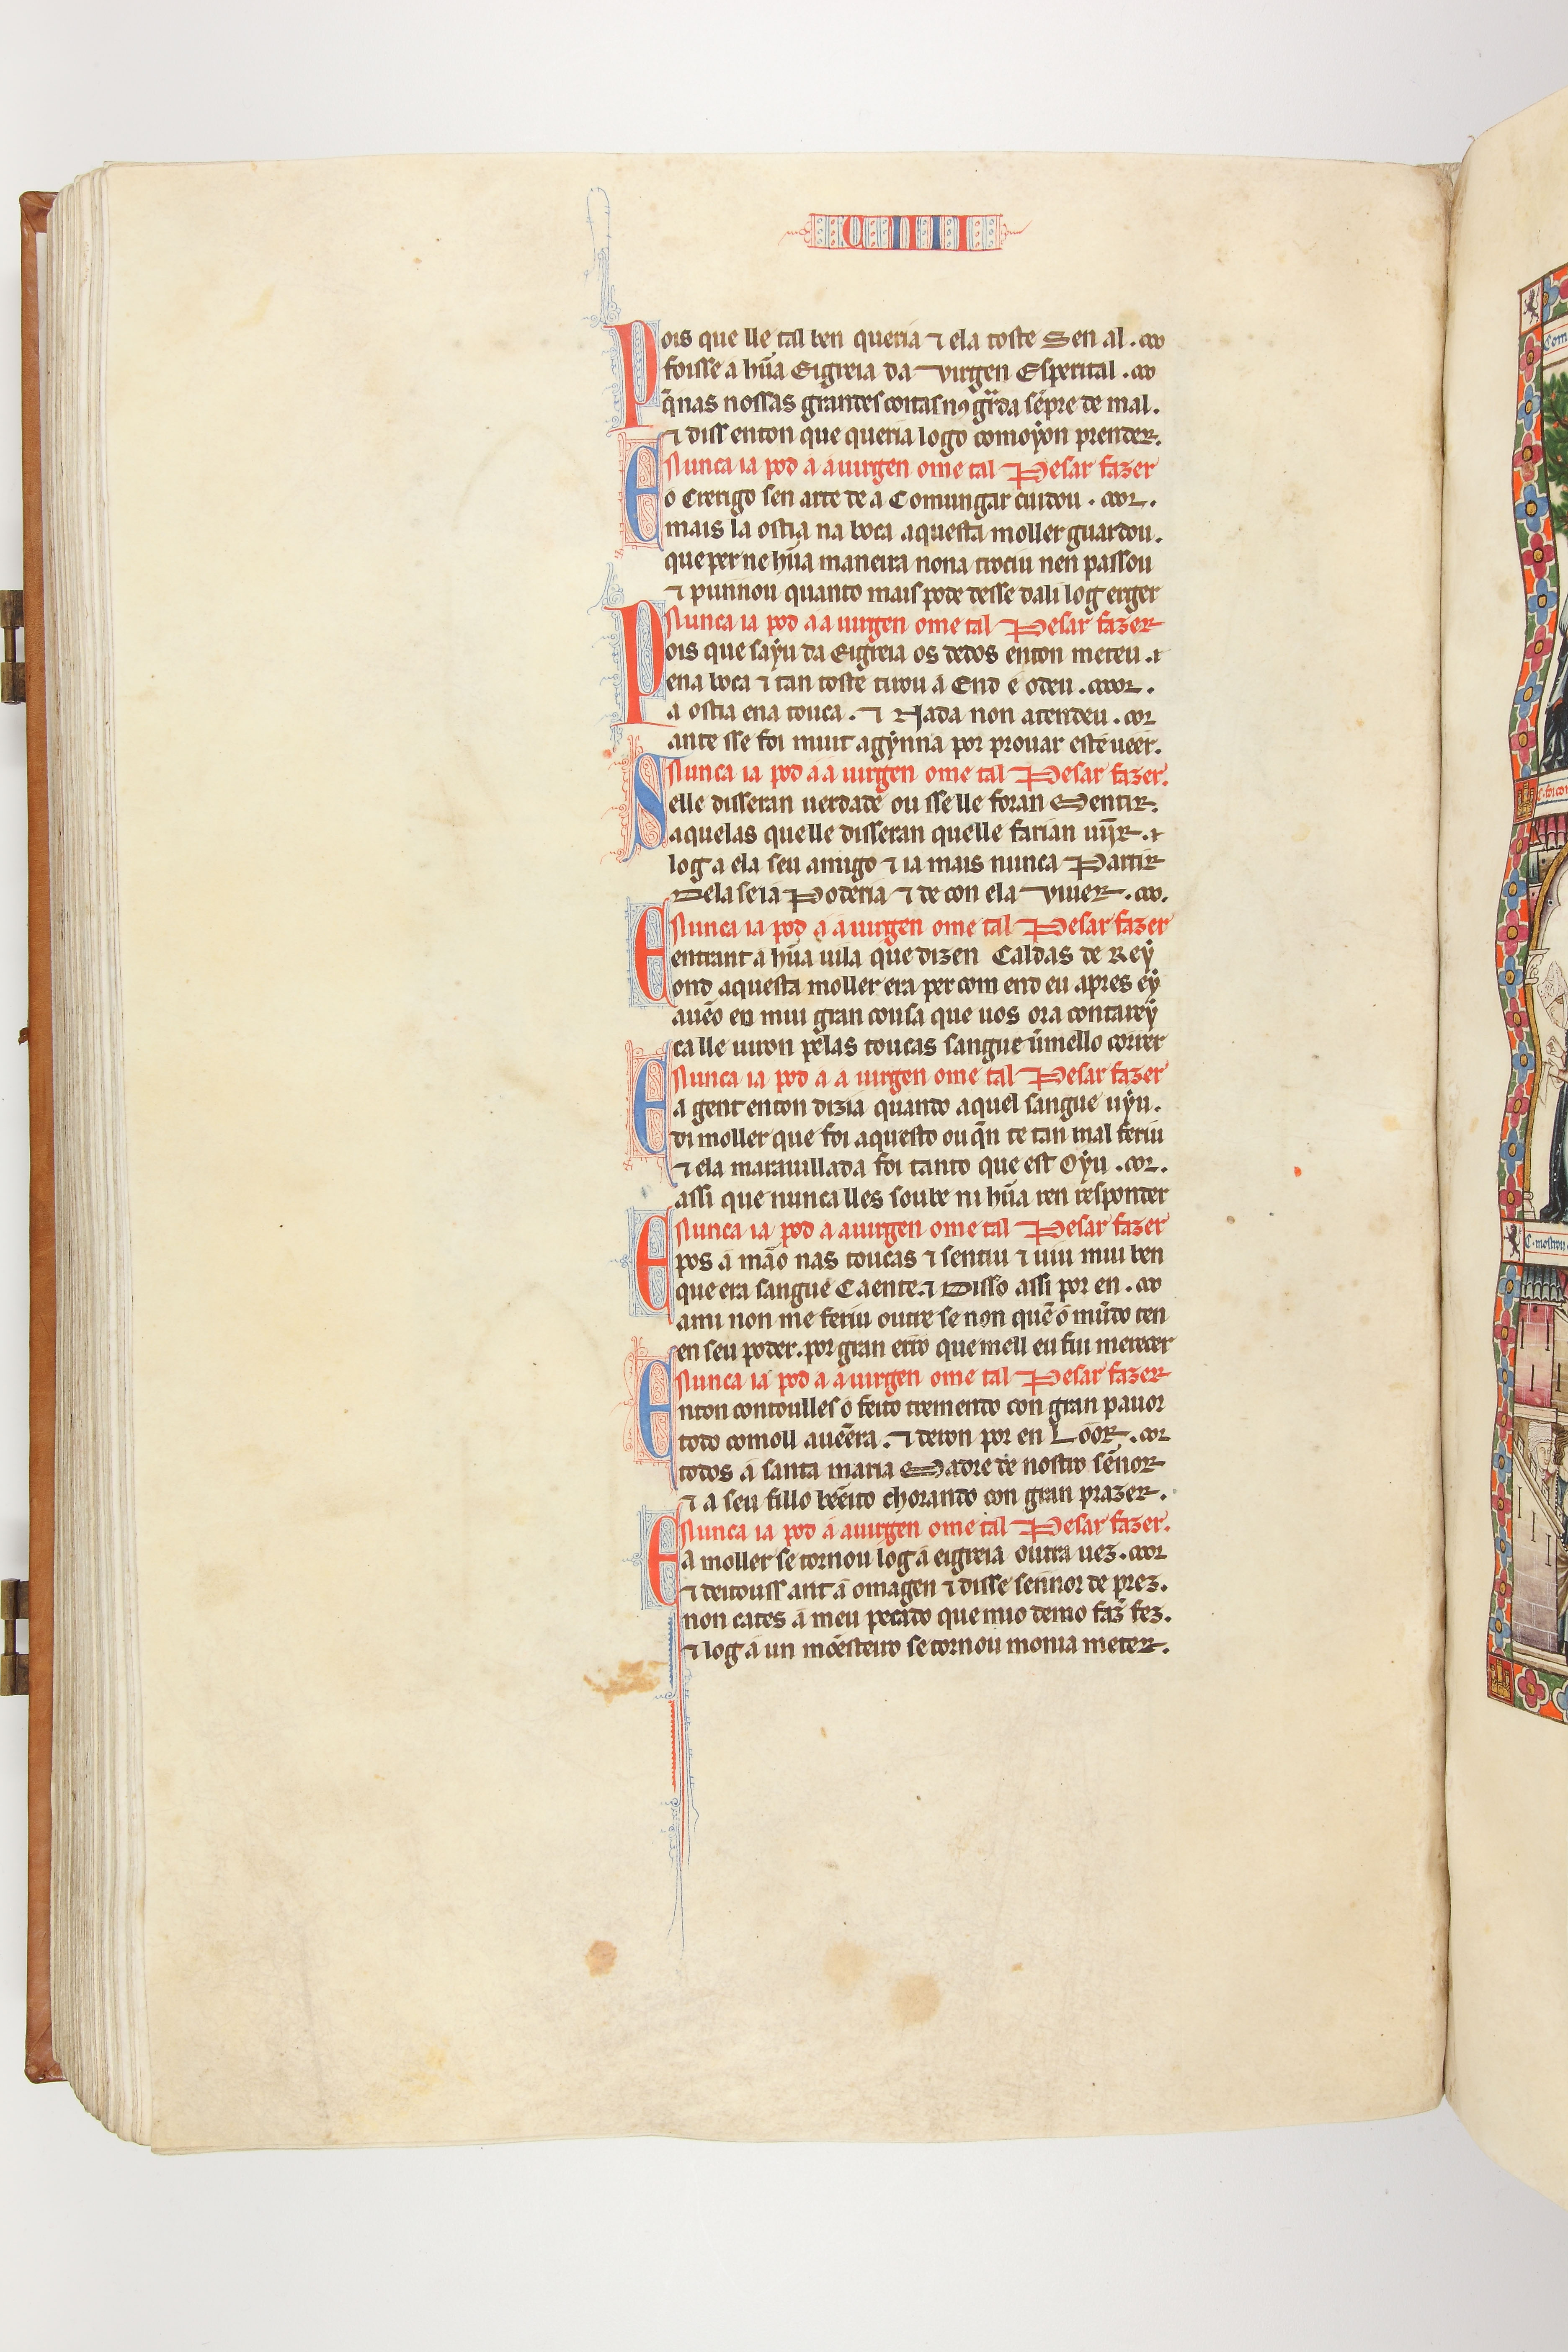 UIII
Pois que lle tal ben queria ⁊ ela toste Sen al .
foisse a hũa Eigreia da Virgen Esperital .
q̃ nas nossas grandes coitas nꝯ guarda sẽpre de mal .
⁊ diss enton que queria logo comoyon prender .
Nunca ia pod a a uirgen ome tal Pesar fazer
E o Crerigo sen arte de a Comungar cuidou .
mais la ostia na boca aquesta moller guardou .
que per ne hũa maneira nona trociu nen passou
⁊ punnou quanto mais pode desse dali log erger
Nunca ia pod a a uirgen ome tal Pesar fazer
Pois que sayu da Eigreia os dedos enton meteu .
ena boca ⁊ tan toste tirou a End e odeu .
a ostia ena touca . ⁊ Nada non atendeu .
ante sse foi muit agynna por prouar est e ueer .
Nunca ia pod a a uirgen ome tal Pesar fazer .
Se lle disseran uerdade ou sse lle foran Mentir .
aquelas que lle disseran quelle farian uĩjr .
log a ela seu amigo ⁊ ia mais nunca Partir
Dela se ia Poderia ⁊ de con ela Viuer .
Nunca ia pod a a uirgen ome tal Pesar fazer
E entrant a hũa uila que dizen Caldas de Rey
ond aquesta moller era per com end eu apres ey
auẽo en mui gran cousa que uos ora contarey
ca lle uiron pelas toucas sangue ũmello correr
Nunca ia pod a a uirgen ome tal Pesar fazer
E a gent enton dizia quando aquel sangue uyu .
di moller que foi aquesto ou q̃n te tan mal feriu
⁊ ela marauillada foi tanto que est Oyu .
assi que nunca lles soube ni hũa ren responder
Nunca ia pod a a uirgen ome tal Pesar fazer
E pos a mão nas toucas ⁊ sentiu ⁊ uiu mui ben
que era sangue Caente . ⁊ Disso assi por en .
a mi non me feriu outre se non quẽ o mũdo ten
en seu poder . por gran erro que mell eu fui merecer
Nunca ia pod a a uirgen ome tal Pesar fazer
Enton contoulles o feito tremendo con gran pauor
todo comoll auẽera . ⁊ deron por en Loor .
todos a santa maria Madre de nostro sẽnor
⁊ a seu fillo bẽeito chorando con gran prazer .
Nunca ia pod a a uirgen ome tal Pesar fazer .
E a moller se tornou log a eigreia outra uez .
⁊ deitouss ant a omagen ⁊ disse sennor de prez .
non cates a meu pecado que mio demo faz̃ fez .
⁊ log a un mõesteiro se tornou monia meter .